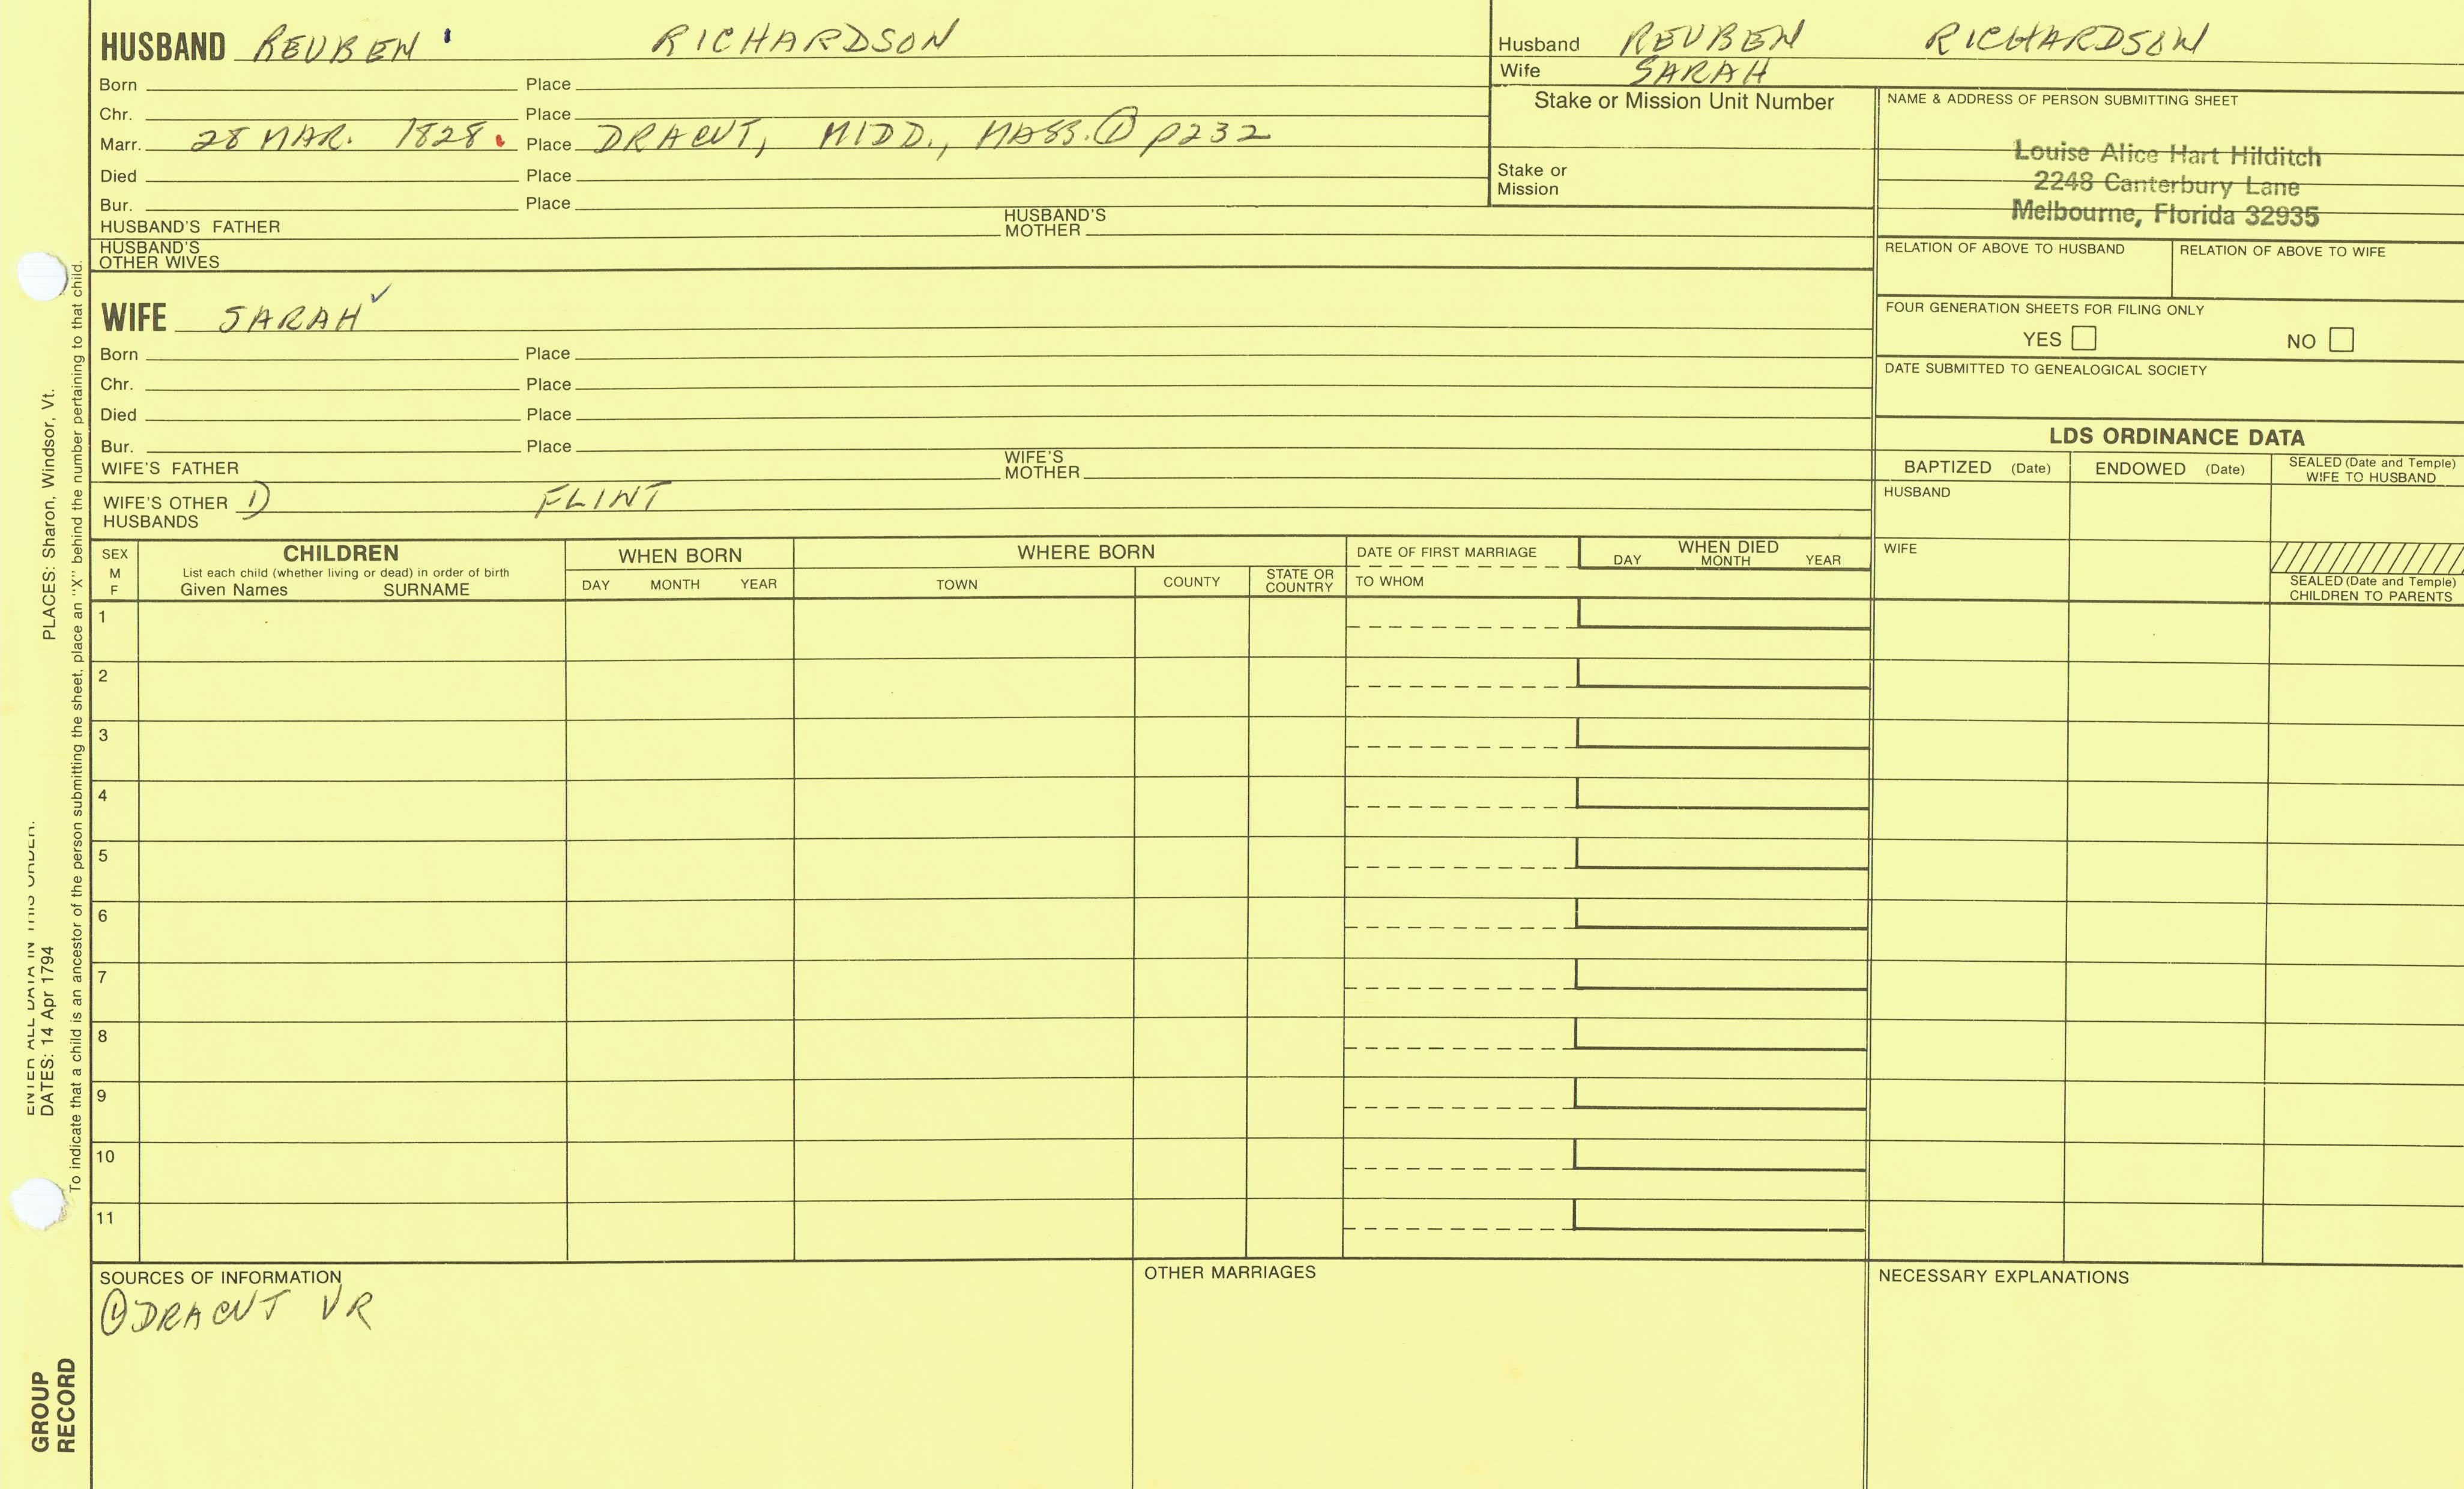 HUSBAND REUBEN RICHARDSON
Born Place
Chr. Place
Marr. 28 MAR. 1828. Place DRACUT, MIDD., MASS. ① p232
Died Place
Bur. Place
HUSBAND'S FATHER HUSBAND'S MOTHER
HUSBAND'S OTHER WIVES
Husband REUBEN RICHARDSON
Wife SARAH
Stake or Mission Unit Number
Stake or Mission
NAME & ADDRESS OF PERSON SUBMITTING SHEET
Louise Alice Hart Hilditch
2248 Canterbury Lane
Melbourne, Florida 32935
RELATION OF ABOVE TO HUSBAND RELATION OF ABOVE TO WIFE
FOUR GENERATION SHEETS FOR FILING ONLY
YES NO
DATE SUBMITTED TO GENEALOGICAL SOCIETY
WIFE SARAH ✓
Born Place
Chr. Place
Died Place
Bur. Place
WIFE'S FATHER WIFE'S MOTHER
WIFE'S OTHER HUSBANDS 1) FLINT
LDS ORDINANCE DATA
BAPTIZED (Date) ENDOWED (Date) SEALED (Date and Temple) WIFE TO HUSBAND
HUSBAND
WIFE
SEALED (Date and Temple) CHILDREN TO PARENTS
SEX M F
CHILDREN
List each child (whether living or dead) in order of birth
Given Names SURNAME
WHEN BORN
DAY MONTH YEAR
WHERE BORN
TOWN COUNTY STATE OR COUNTRY
DATE OF FIRST MARRIAGE
TO WHOM
WHEN DIED
DAY MONTH YEAR
1
2
3
4
5
6
7
8
9
10
11
SOURCES OF INFORMATION
① DRACUT VR
OTHER MARRIAGES
NECESSARY EXPLANATIONS
ENTER ALL DATA IN THIS ORDER:
DATES: 14 Apr 1794 PLACES: Sharon, Windsor, Vt.
To indicate that a child is an ancestor of the person submitting the sheet, place an "X" behind the number pertaining to that child.
GROUP
RECORD